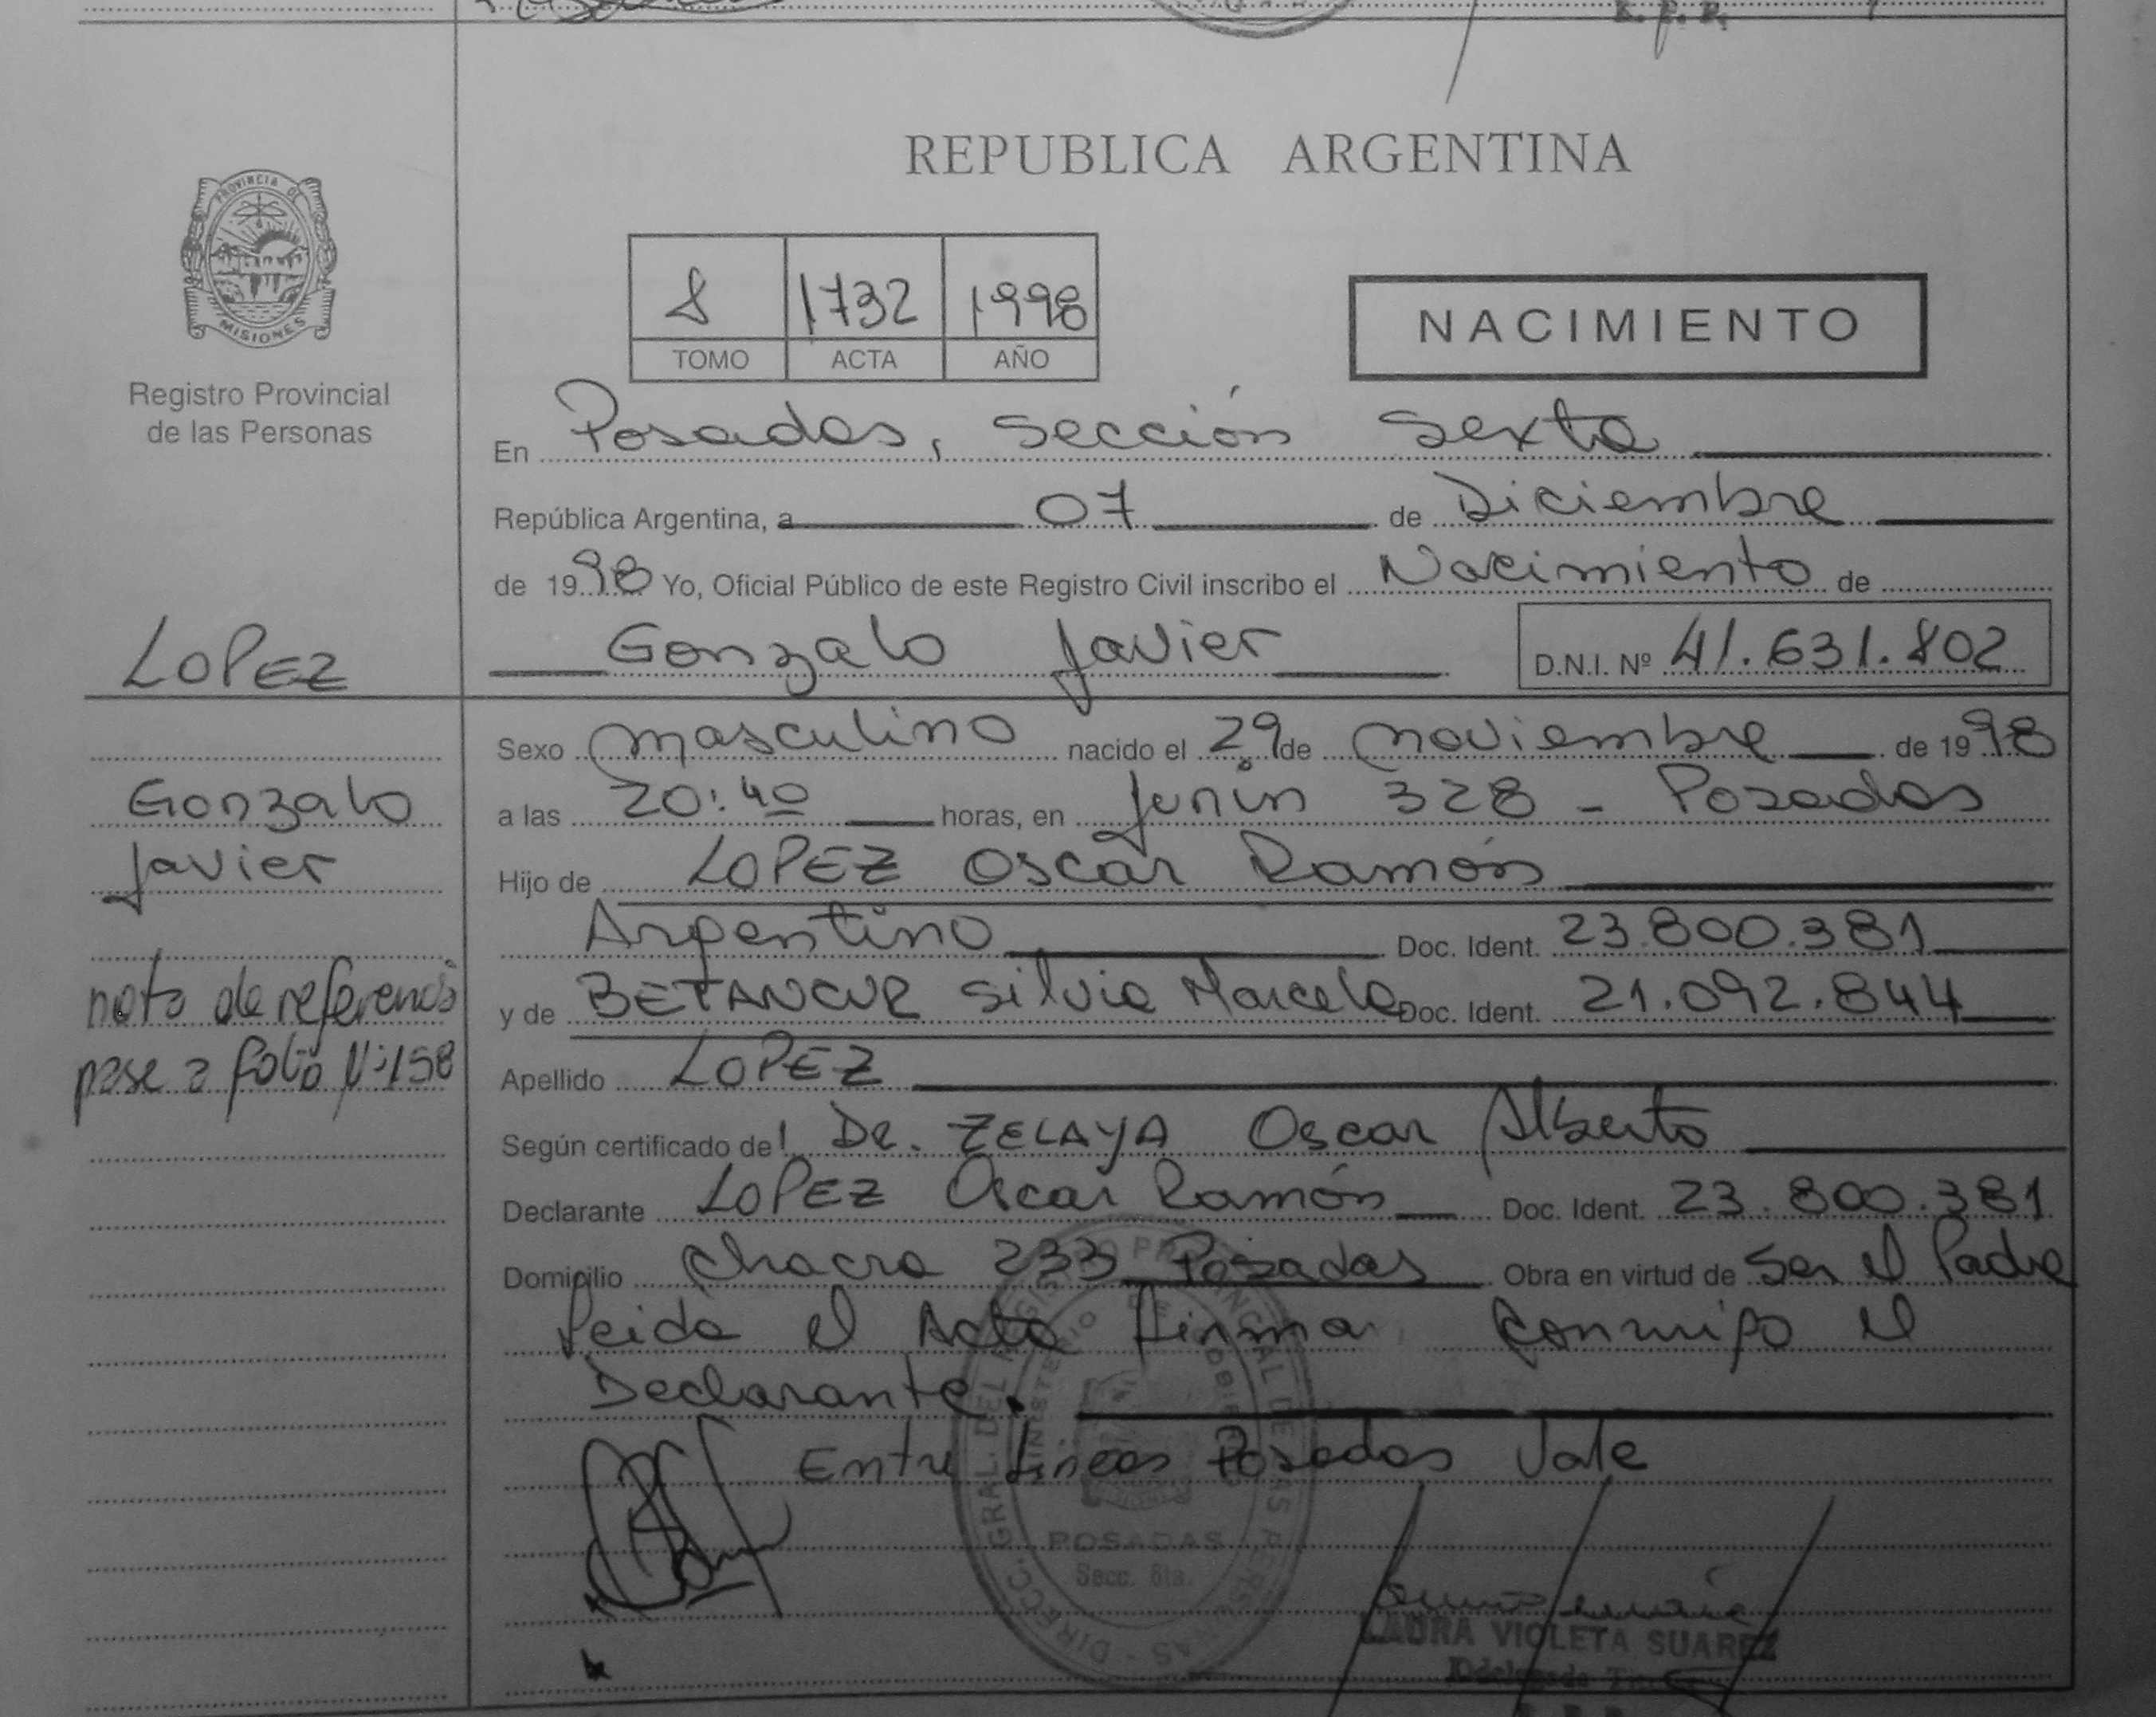 R. P. P.
REPUBLICA ARGENTINA
PROVINCIA DE
MISIONES
Registro Provincial
de las Personas
8 1732 1998
TOMO ACTA AÑO
NACIMIENTO
En Posadas, Sección Sexta
República Argentina, a 07 de Diciembre
de 1998 Yo, Oficial Público de este Registro Civil inscribo el Nacimiento de
LOPEZ
Gonzalo Javier D.N.I. Nº 41.631.802
Sexo masculino nacido el 29 de noviembre de 1998
Gonzalo
a las 20:40 horas, en Junín 328 - Posadas
Javier
Hijo de LOPEZ Oscar Ramón
Argentino Doc. Ident. 23.800.381
nota de referencia
y de BETANCUR Silvia Marcela Doc. Ident. 21.092.844
pase a folio Nº 158
Apellido LOPEZ
Según certificado del Dr. ZELAYA Oscar Alberto
Declarante LOPEZ Oscar Ramón Doc. Ident. 23.800.381
Domicilio Chacra 233 Posadas Obra en virtud de Ser el Padre
Leida el Acta Firma Conmigo el
Declarante.
Entre Lineas Posadas Vale
DIRECC. GRAL. DEL REGISTRO PROVINCIAL DE LAS PERSONAS
MINISTERIO DE GOBIERNO
POSADAS
Secc. 6ta.
LAURA VIOLETA SUAREZ